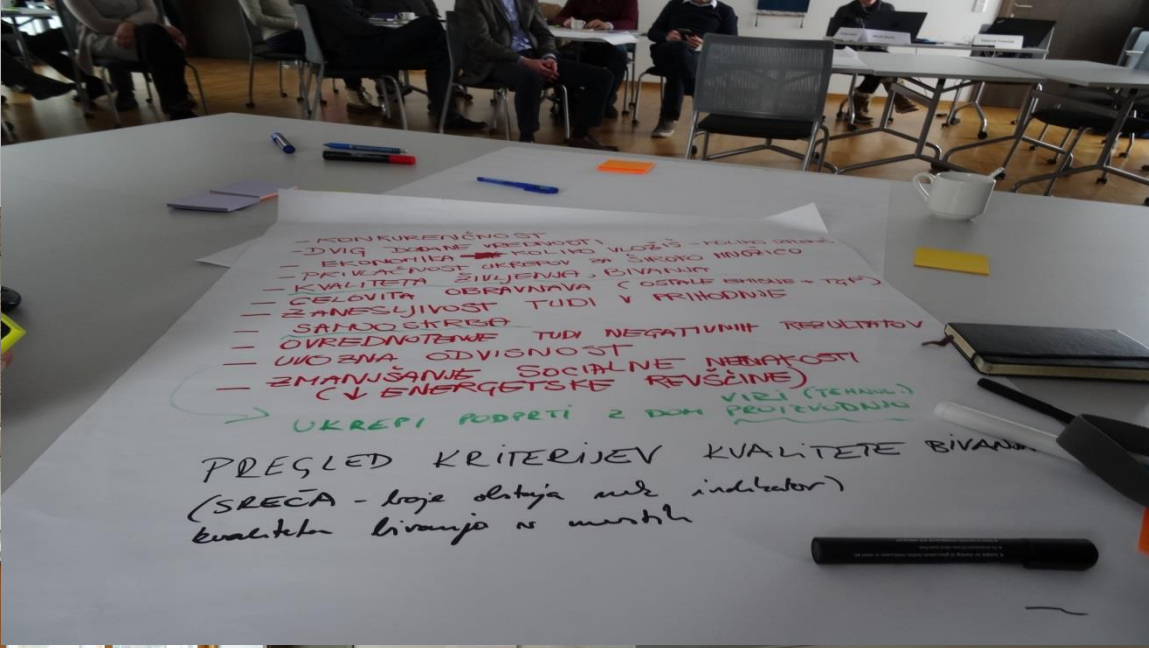 - KONKURENČNOST
- DVIG DODANE VREDNOSTI
- EKONOMIKA KOLIKO VLOŽIŠ - KOLIKO
- PRIVLAČNOST UKREPOV ZA ŠIROKO MNOŽICO
- KVALITETA ŽIVLJENJA, BIVANJA
- CELOVITA OBRAVNAVA (OSTALE EMISIJE + TGP)
- ZANESLJIVOST TUDI V PRIHODNJE
- SAMOOSKRBA
- OVREDNOTENJE TUDI NEGATIVNIH REZULTATOV
- UVOZNA ODVISNOST
- ZMANJŠANJE SOCIALNE NEENAKOSTI
(↓ ENERGETSKE REVŠČINE)
VIRI (TEHNOL.)
UKREPI PODPRTI Z DOM PROIZVODNJO
PREGLED KRITERIJEV KVALITETE BIVANJA
(SREČA - baje obstaja nek indikator)
kvaliteta bivanja v mestih